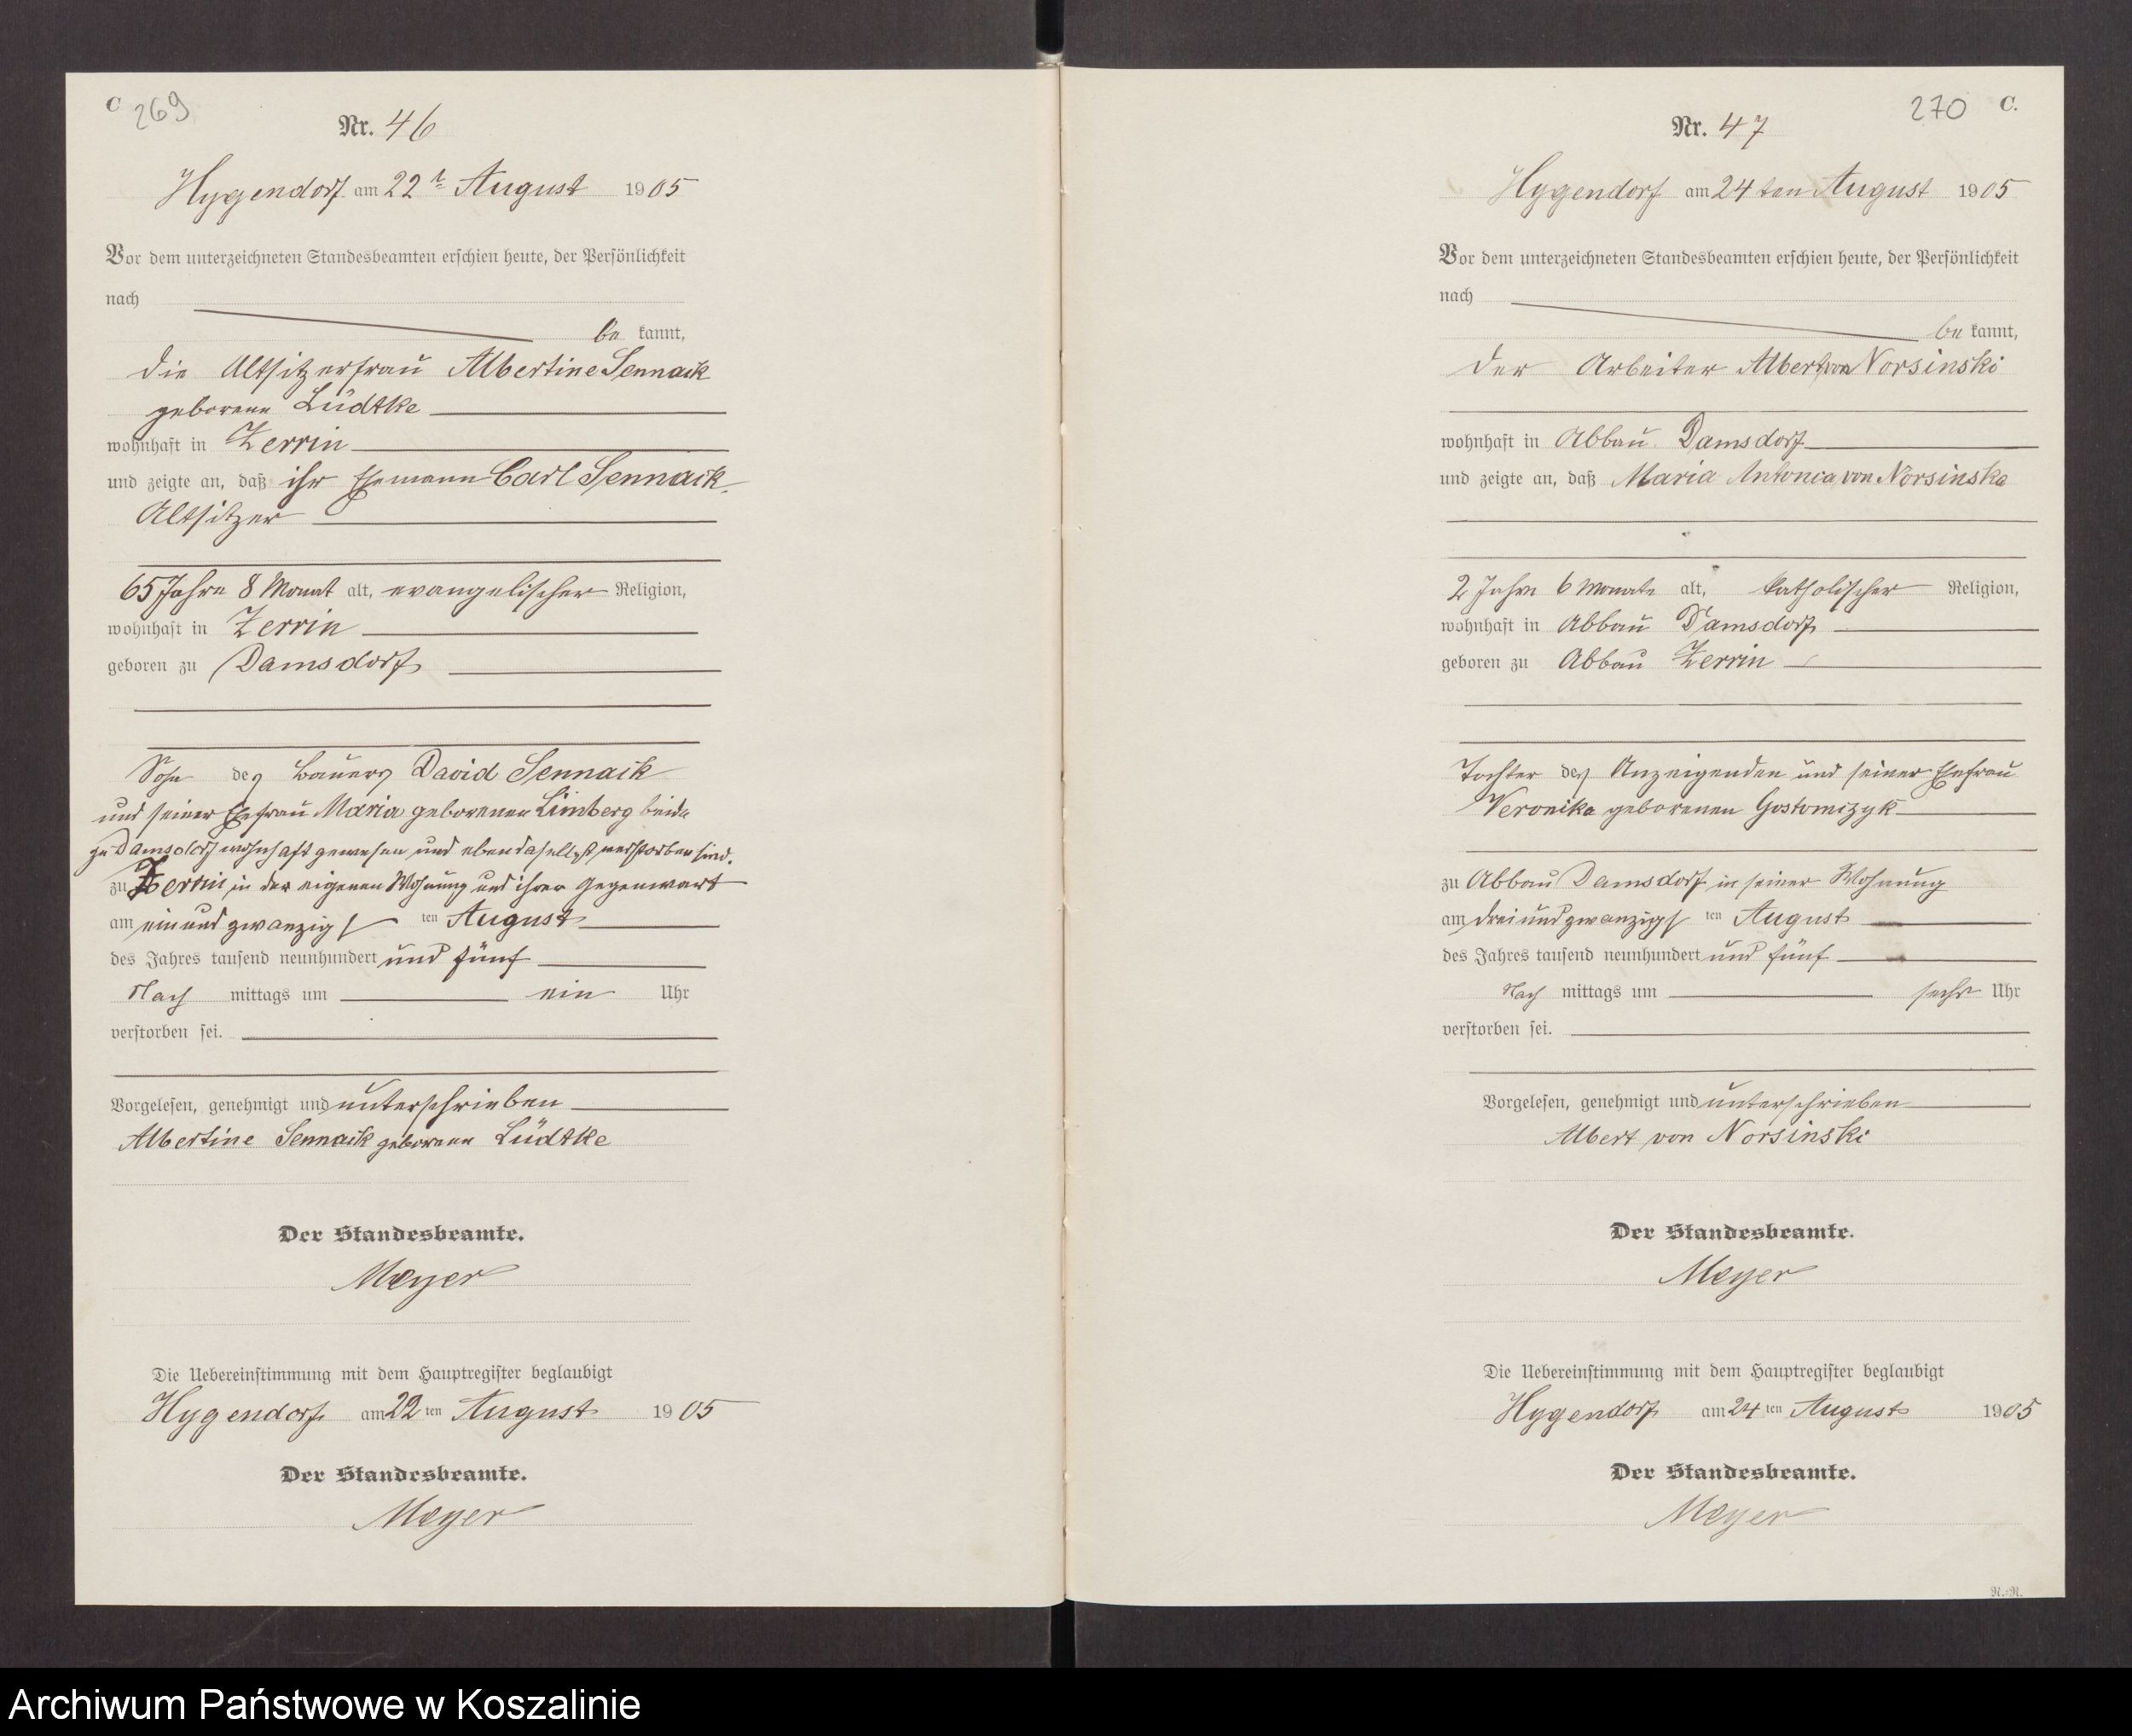 C 269
Nr. 46
Hygendorf am 22t August 1905
Vor dem unterzeichneten Standesbeamten erschien heute, der Persönlichkeit
nach
be kannt,
die Altsitzerfrau Albertine Sennack
geborene Lüdtke
wohnhaft in Zerrin
und zeigte an, daß ihr Ehemann Carl Sennack
Altsitzer
65 Jahre 8 Monat alt, evangelischer Religion,
wohnhaft in Zerrin
geboren zu Damsdorf
Sohn des Bauers David Sennack
und seiner Ehefrau Maria geborenen Limberg beide
zu Damsdorf wohnhaft gewesen und ebendaselbst verstorben sind.
zu Zerrin in der eigenen Wohnung und ihrer Gegenwart
am einundzwanzigs ten August
des Jahres tausend neunhundert und fünf
Nach mittags um ein Uhr
verstorben sei.
Vorgelesen, genehmigt und unterschrieben
Albertine Sennack geborene Lüdtke
Der Standesbeamte.
Meyer
Die Uebereinstimmung mit dem Hauptregister beglaubigt
Hygendorf am 22 ten August 1905
Der Standesbeamte.
Meyer
270 C.
Nr. 47
Hygendorf am 24 ten August 1905
Vor dem unterzeichneten Standesbeamten erschien heute, der Persönlichkeit
nach
be kannt,
der Arbeiter Albert von Norsinski
wohnhaft in Abbau Damsdorf
und zeigte an, daß Maria Antonia von Norsinska
2 Jahre 6 Monate alt, katholischer Religion,
wohnhaft in Abbau Damsdorf
geboren zu Abbau Zerrin
Tochter des Anzeigenden und seiner Ehefrau
Veronika geborenen Gostomczyk
zu Abbau Damsdorf in seiner Wohnung
am dreiundzwanzigs ten August
des Jahres tausend neunhundert und fünf
Nach mittags um sechs Uhr
verstorben sei.
Vorgelesen, genehmigt und unterschrieben
Albert von Norsinski
Der Standesbeamte.
Meyer
Die Uebereinstimmung mit dem Hauptregister beglaubigt
Hygendorf am 24 ten August 1905
Der Standesbeamte.
Meyer
R.-R.
Archiwum Państwowe w Koszalinie